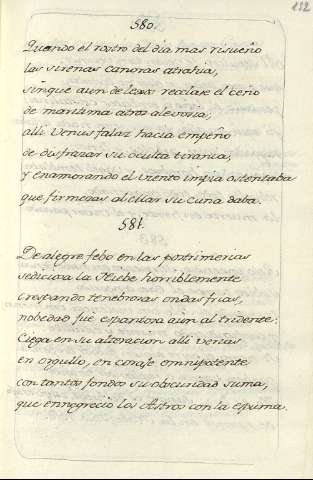 112
580.
Quando el rostro del dia mas risueño
las sirenas canoras atrahia,
sin que aun de lexos rezelase el ceño
de maritima atroz alevosia;
alli Venus falaz hacia empeño
de disfrazar su oculta tirania,
y enamorando el viento impia ostentaba
que firmezas al mar su cuna daba.
581.
De alegre febo en las postrimerias
sediciosa la Niebe horriblemente
crespando tenebrosas ondas frias,
nobedad fue espantosa aun al tridente:
Ciega en su alteracion alli verias
en orgullo, en coraje omnipotente
con tantos fondos su obscuridad suma,
que ennegrecio los Astros con la espuma.